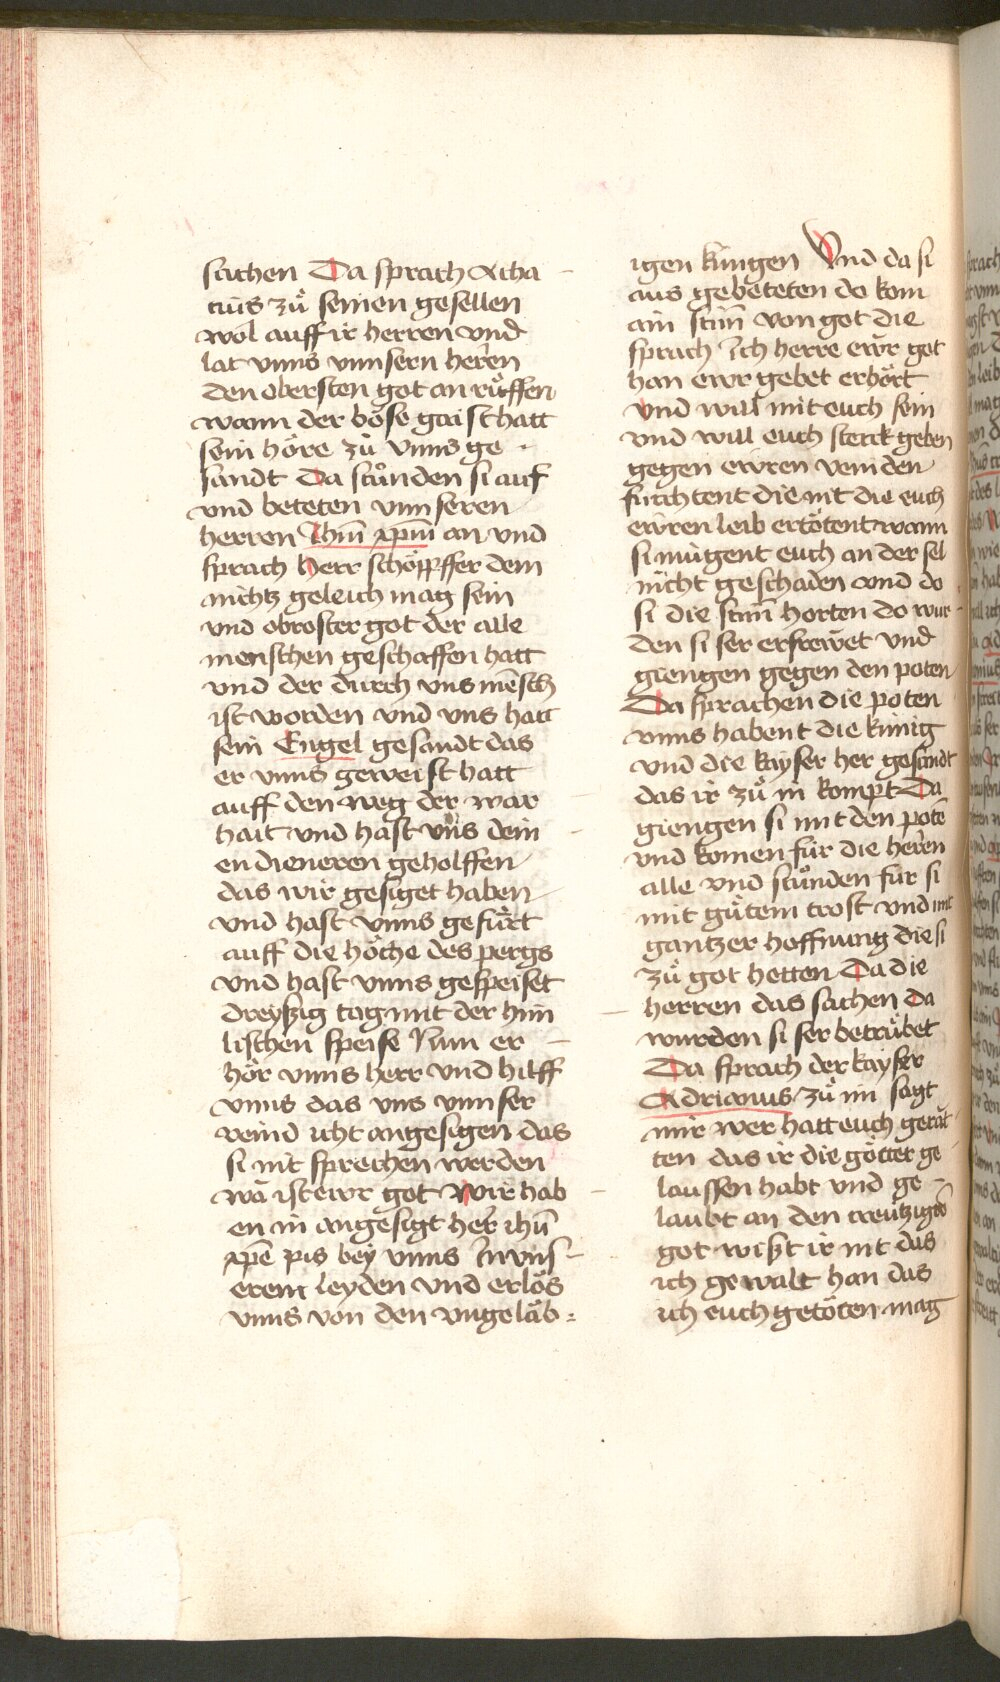 sachen Da sprach Acha
cius zů seinen gesellen
wol auff ir herren vnd
lat vnns vnnsern heren
den obersten got an růffen
wann der böse gaist hatt
sein höre zů vnns ge
sandt Da stůnden si auf
vnd beteten vnnseren
herren Jhm̄ xpm̄ an vnd
sprach herr schöpffer dem
nichtz geleich mag sein
vnd obroster got der alle
menschen geschaffen hatt
vnd der durch vns mēsch
ist worden vnd vns hatt
sein Engel gesandt das
er vnns geweist hatt
auff den weg der war
hait vnd hast vn̄s dein
en dieneren geholffen
das wir gesiget haben
vnd hast vnns gefůrt
auff die höche des pergs
vnd hast vnns gespeiset
dreyßig tag mit der him
lischen speise Nun er
hör vnns herr vnd hilff
vnns das vns vnnser
veind icht angesigen das
si nit sprechen werden
wā ist ewr got Wir hab
en in angesigt her ihū
xpē pis bey vnns In vns
erem leyden vnd erlös
vnns von den vngeläb
igen kungen Vnd da si
aus gebeteten do kom
ain stim̄ von got die
sprach Ich herre ewr got
han ewr gebet erhört
vnd will mit euch sein
vnd will euch sterck geben
gegen ewren veinden
fürchtent die nit die euch
ewren leib ertötent wann
si mügent euch an der sel
nicht geschaden vnd do
si die stim̄ horten do wur
den si ser erfrewet vnd
giengen gegen den poten
Da sprachen die poten
vnns habent die künig
vnd die kayser her gesandt
das ir zů in kompt Da
giengen si mit den potē
vnd komen für die heren
alle vnd stůnden für si
mit gůtem trost vnd mit
gantzer hoffnung die si
zů got hetten Da die
herren das sachen Da
wurden si ser betrübet
Da sprach der kayser
Adrianus zů im sagt
mir wer hatt euch gerat
ten das ir die götter ge
laussen habt vnd ge
laubt an den creützigtē
got wißt ir nit das
ich gewalt han das
ich euch getöten mag